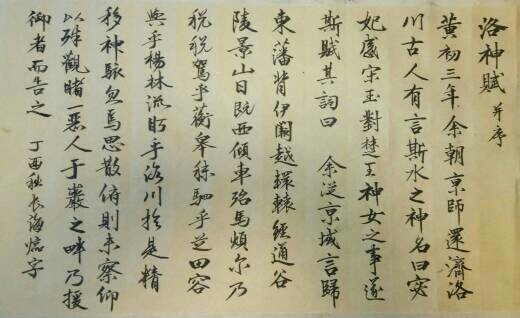 洛神賦 并序
黄初三年余朝京師還濟洛
川古人有言斯水之神名曰宓
妃感宋玉對楚王神女之事遂
斯賦其詞曰 余從京域言歸
東藩背伊闕越轘轅經通谷
陵景山日既西傾車殆馬煩尔乃
税税駕乎蘅皋秣駟乎芝田容
與乎楊林流眄乎洛川於是精
移神駭忽焉思散俯則未察仰
以殊觀睹一麗人于巖之畔乃援
御者而告之 丁酉秋長海字